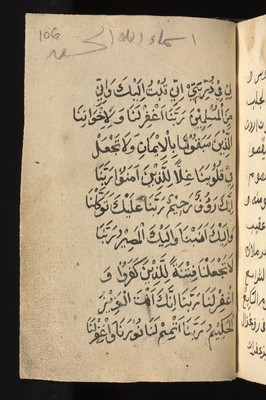 106
اسماء الله الحسنى
لي في ذريتي اني تبت اليك واني
من المسلمين ربنا اغفر لنا ولاخواننا
الذين سبقونا بالايمان ولا تجعل
في قلوبنا غلا للذين آمنوا ربنا
انك رؤف رحيم ربنا عليك توكلنا
واليك انبنا واليك المصير ربنا
لا تجعلنا فتنة للذين كفروا و
اغفر لنا ربنا انك انت العزيز
الحكيم ربنا اتمم لنا نورنا واغفر لنا